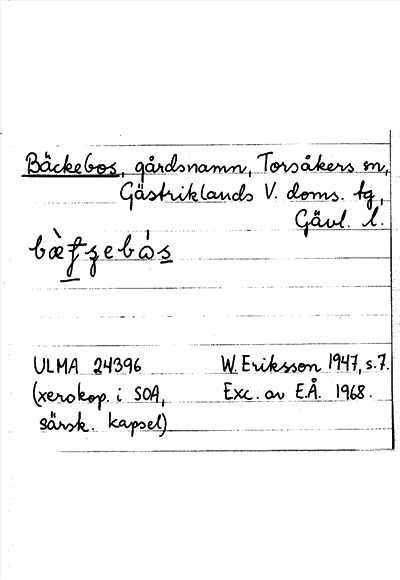 Bäckebos, gårdsnamn, Torsåkers sn,
Gästriklands V. doms. tg,
Gävl. l.
ULMA 24396 W. Eriksson 1947, s. 7.
(xerokop. i SOA, Exc. av E.Å. 1968.
särsk. kapsel)